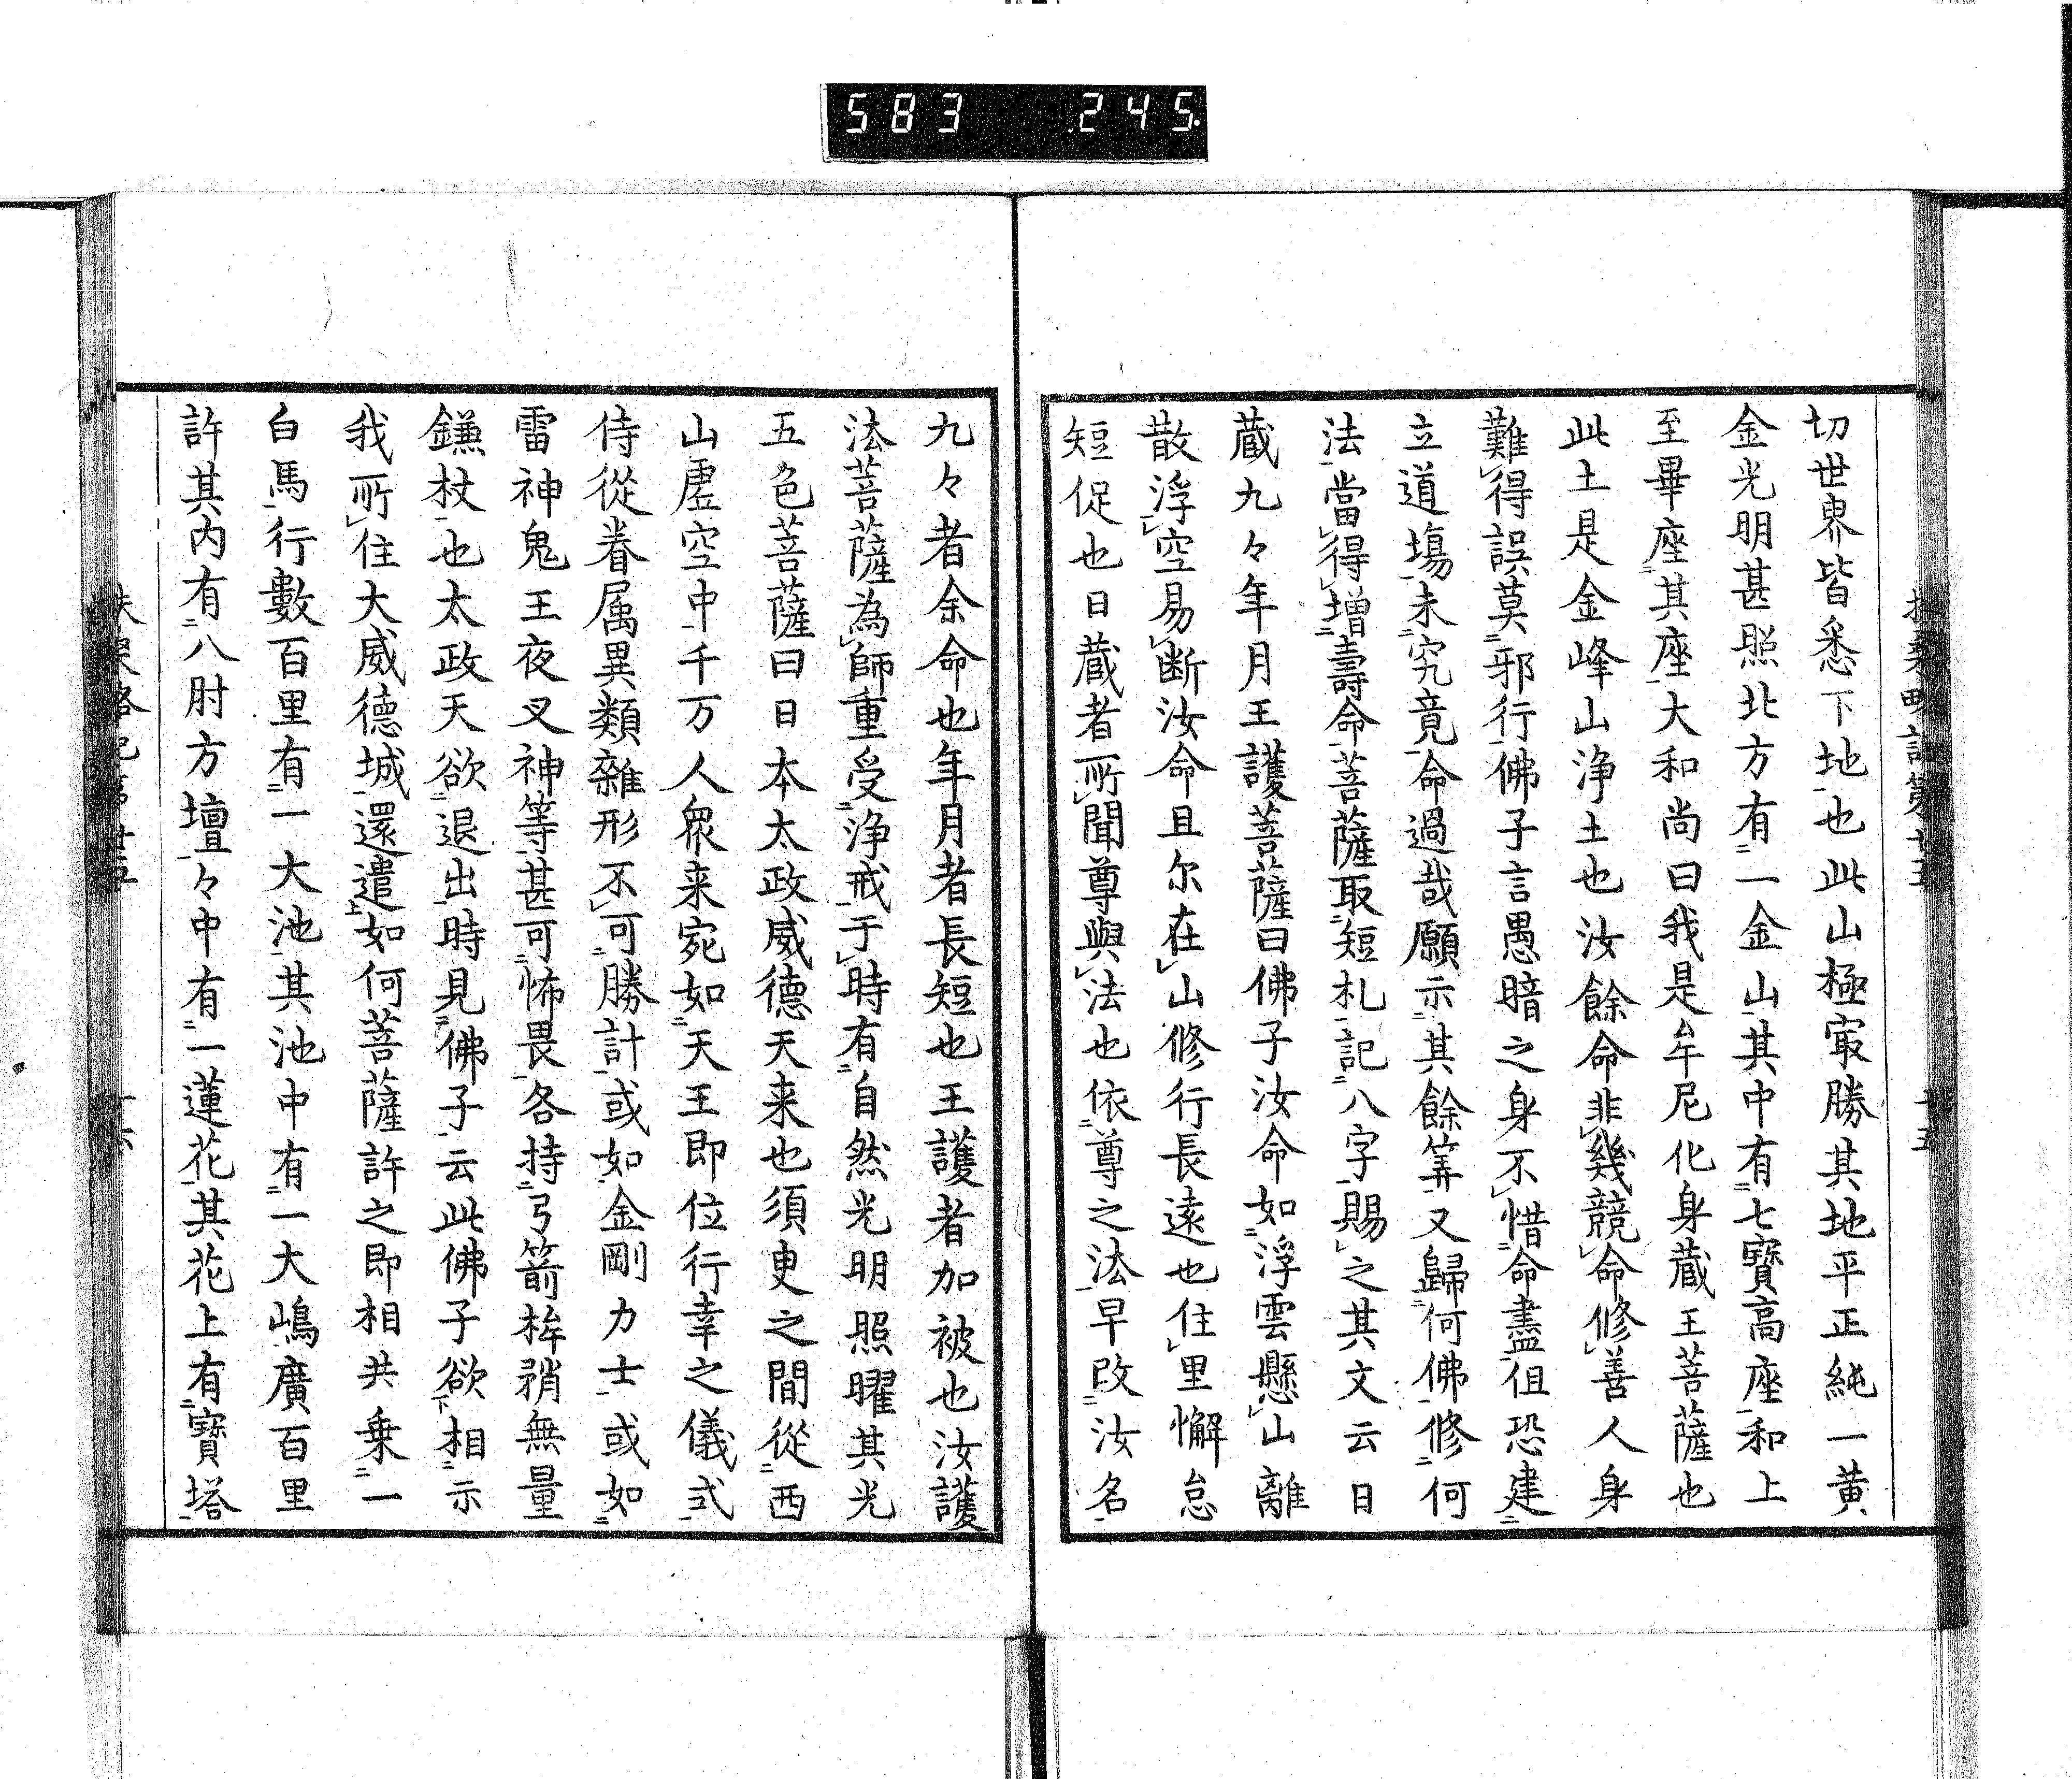 583 245.
扶桑略記第廿五 十五
切世界皆悉下地也此山極㝡勝其地平正純一黄
金光明甚照北方有一金山其中有七寶高座和上
至畢座其座大和尚曰我是牟尼化身蔵王菩薩也
此土是金峰山浄土也汝餘命非幾競命修善人身
難得誤莫邪行佛子言愚暗之身不惜命盡但恐建
立道塲未究竟命過哉願示其餘筭又歸何佛修何
法當得増壽命菩薩取短札記八字賜之其文云日
蔵九々年月王護菩薩曰佛子汝命如浮雲懸山離
散浮空易断汝命且尓在山修行長遠也住里懈怠
短促也日蔵者所聞尊與法也依尊之法早改汝名
九々者余命也年月者長短也王護者加被也汝護
法菩薩為師重受浄戒于時有自然光明照曜其光
五色菩薩曰日本太政威德天来也須臾之間從西
山虚空中千万人衆来宛如天王即位行幸之儀式
侍從眷属異類雜形不可勝計或如金剛力士或如
雷神鬼王夜叉神等甚可怖畏各持弓箭桙矟無量
鎌杖也太政天欲退出時見佛子云此佛子欲相示
我所住大威德城還遣如何菩薩許之即相共乗一
白馬行數百里有一大池其池中有一大嶋廣百里
許其内有八肘方壇々中有一蓮花其花上有寶塔
扶桑略記第廿五 十六